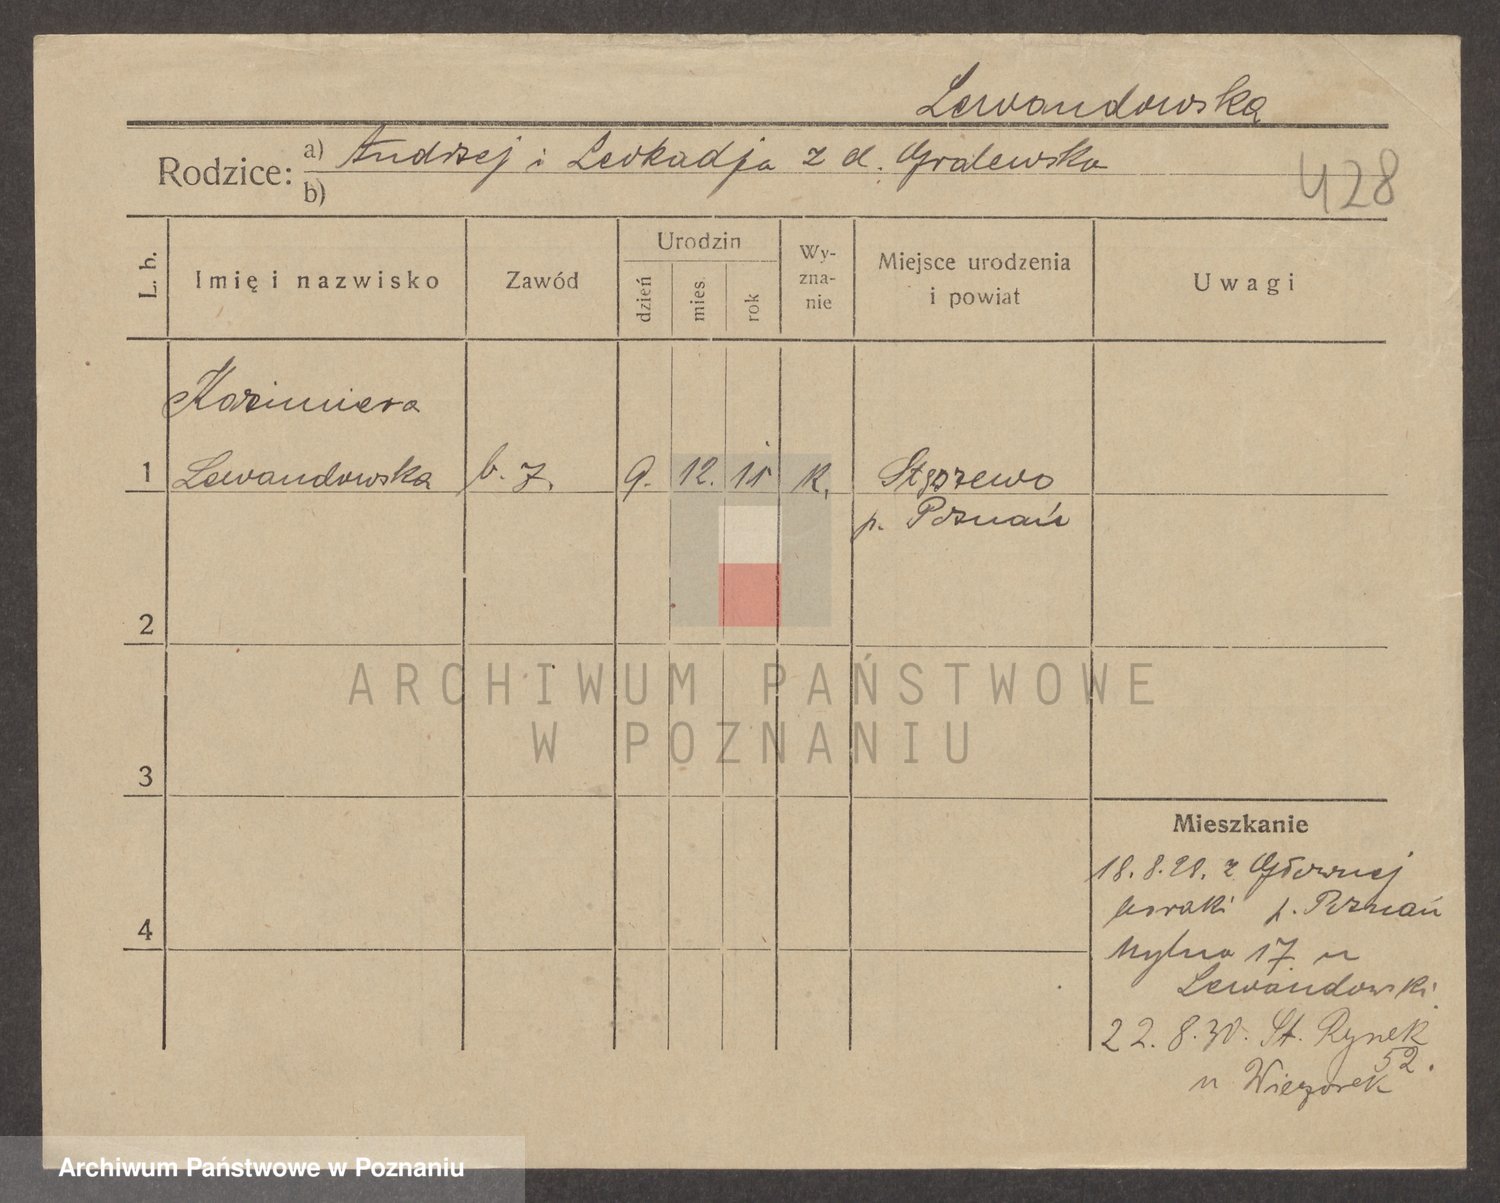 Lewandowska
Rodzice: a) Andrzej i Leokadja z d. Gralewska
b)
428
L. b. Imię i nazwisko Zawód Urodzin dzień mies. rok Wy-zna-nie Miejsce urodzenia i powiat Uwagi
Kazimiera
1 Lewandowska b. z. 9. 12. 11 k. Stęszewo
p. Poznań
2
3
4
Mieszkanie
18.8.28. z Głównej
p. Poznań
17 u
Lewandowski
22.8.30. St. Rynek
52.
u Wieczorek
ARCHIWUM PAŃSTWOWE
W POZNANIU
Archiwum Państwowe w Poznaniu